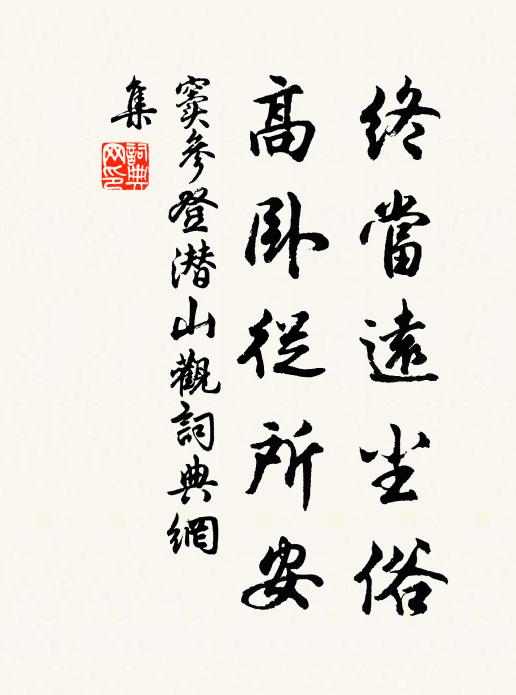 終當遠尘俗
高卧從所安
竇參登潜山觀詞典網
集
詞典網印